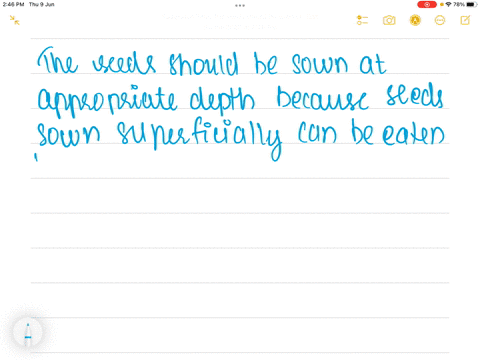 2:46 PM Thu 9 Jun
78%
The seeds should be sown at
appropriate depth because seeds
sown superficially can be eaten